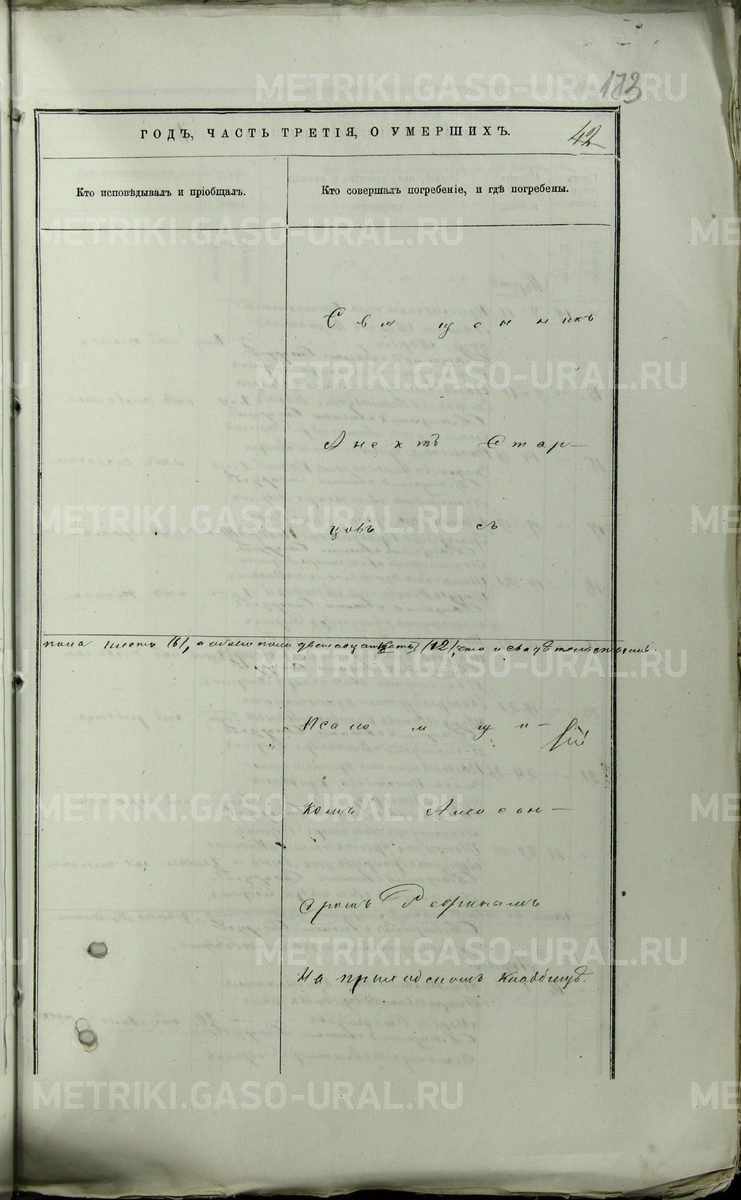 173
ГОДЪ, ЧАСТЬ ТРЕТІЯ, О УМЕРШИХЪ.
42
Кто исповѣдывалъ и пріобщалъ.
Кто совершалъ погребеніе, и гдѣ погребены.
Священникъ
Анектъ Стар-
цовъ съ
пола шесть (6), а обоего пола двенадцать (12), что и свидѣтельствуемъ.
Псаломщи-
комъ Алексан-
дромъ
На приходскомъ кладбищѣ.
METRIKI.GASO-URAL.RU